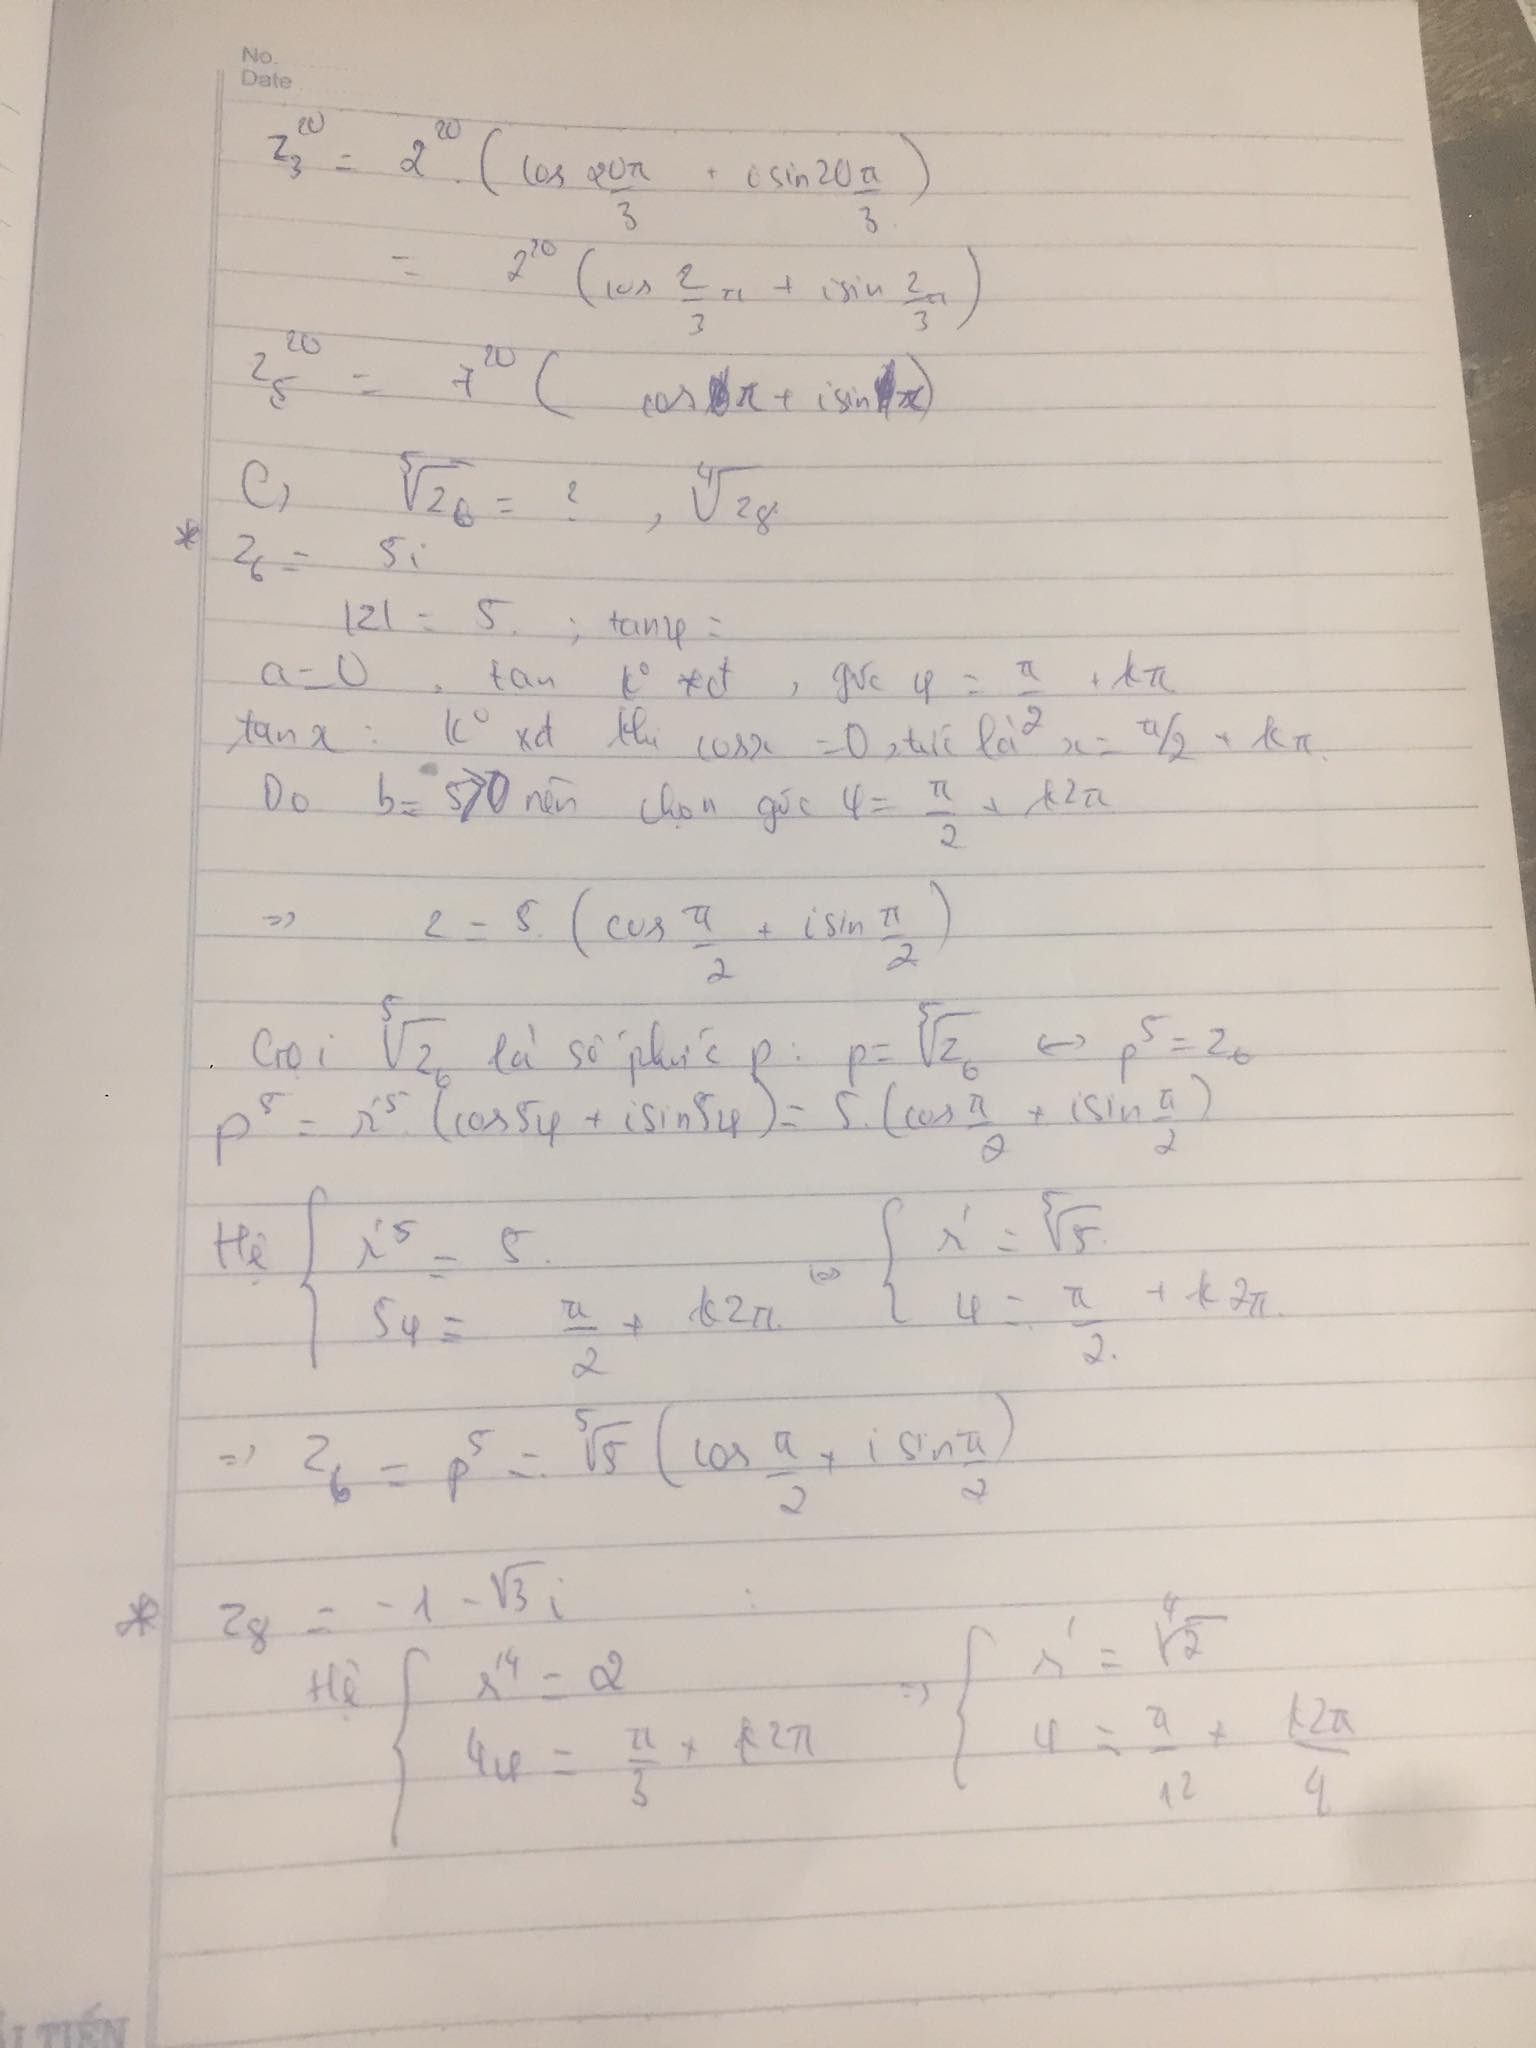 No.
Date
z₃²⁰ = 2²⁰ . (cos 20π/3 + i sin 20π/3)
= 2²⁰ (cos 2/3 π + i sin 2/3 π)
z₅²⁰ = 7²⁰ ( cos π + i sin π)
C, ⁵√z₆ = ? , ⁴√z₈
* z₆ = 5i
|z| = 5. ; tanφ =
a=0 , tan k° xđ , góc φ = π/2 + kπ
tan x : k° xđ khi cosx = 0, tức là x = π/2 + kπ
Do b = 5>0 nên chọn góc φ = π/2 + k2π
=> z = 5. (cos π/2 + i sin π/2)
Gọi ⁵√z₆ là số phức p : p = ⁵√z₆ <-> p⁵ = z₆
p⁵ = r'⁵. (cos5φ + i sin5φ) = 5. (cos π/2 + i sin π/2)
Hệ { r'⁵ = 5. <=> { r' = ⁵√5.
5φ = π/2 + k2π. φ = π/2 + k2π.
=> z₆ = p⁵ = ⁵√5 (cos π/2 + i sin π/2)
* z₈ = -1 - √3 i :
Hệ { r'⁴ = 2 => { r' = ⁴√2
4φ = π/3 + k2π φ = π/12 + k2π/4
ẢI TIẾN